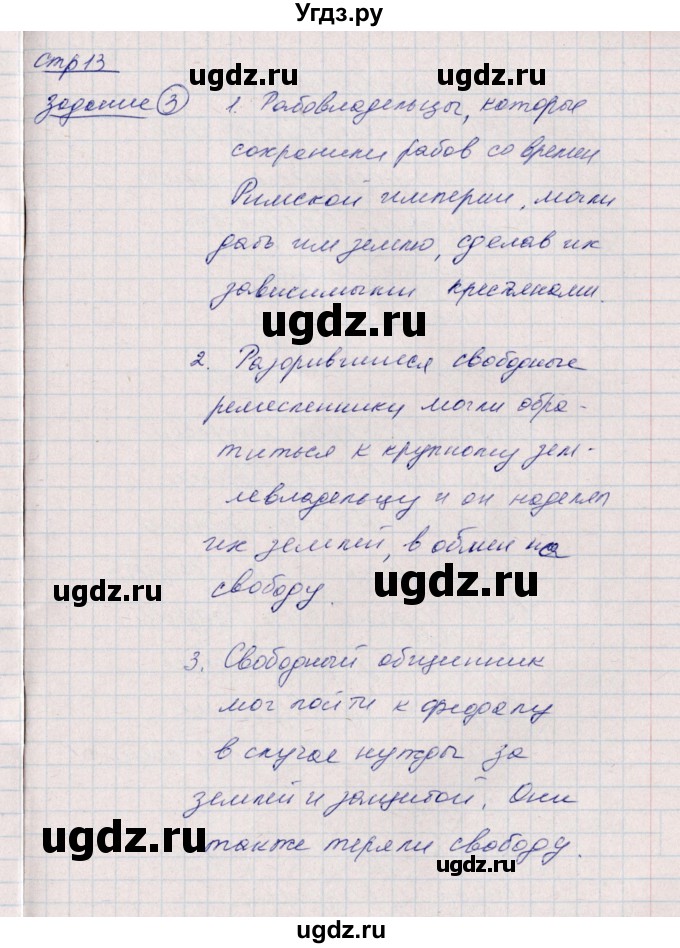 Угдз.ру
стр 13
задание 3
1. Рабовладельцы, которые
сохранили рабов со времен
Римской империи, могли
дать им землю, сделав их
зависимыми крестьянами.
2. Разорившиеся свободные
ремесленники могли обра-
титься к крупному зем-
левладельцу и он наделял
их землей, в обмен на
свободу.
3. Свободный общинник
мог пойти к феодалу
в случае нужды за
землей и защитой. Они
также теряли свободу.
ugdz.ru
ugdz.ru
ugdz.ru
ugdz.ru
ugdz.ru
ugdz.ru
ugdz.ru
ugdz.ru